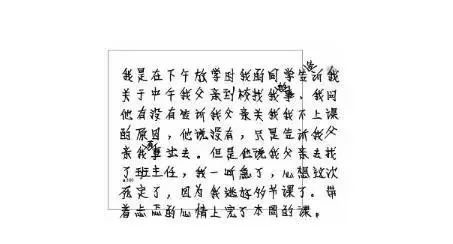 我是在下午放学时我的同学告诉我
关于中午我父亲到校找我事、我问
他有没有告诉我父亲关我我不上课
的原因,他说没有,只是告诉我父
亲我出去。但是他说我父亲去找
了班主任,我一听急了,心想这次
死定了,因为我逃好多节课了。带
着忐忑的心情上完了本周的课。